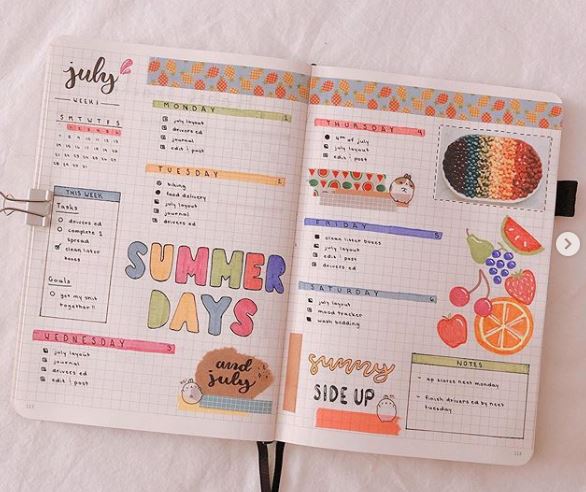 july
WEEK 1
S M T W T F S
THIS WEEK
Tasks
drivers ed
complete 1
spread
clean litter
boxes
Goals
get my shit
together!!
MONDAY 1
july layout
drivers ed
journal
edit 1 post
TUESDAY 2
biking
food delivery
july layout
journal
drivers ed
SUMMER
DAYS
WEDNESDAY 3
july layout
journal
drivers ed
edit 1 post
and
july
THURSDAY 4
4th of july
july layout
edit 1 post
FRIDAY 5
clean litter boxes
july layout
edit 1 post
drivers ed
SATURDAY 6
july layout
mood tracker
wash bedding
sunny
SIDE UP
NOTES
- ap scores next monday
- finish drivers ed by next
tuesday